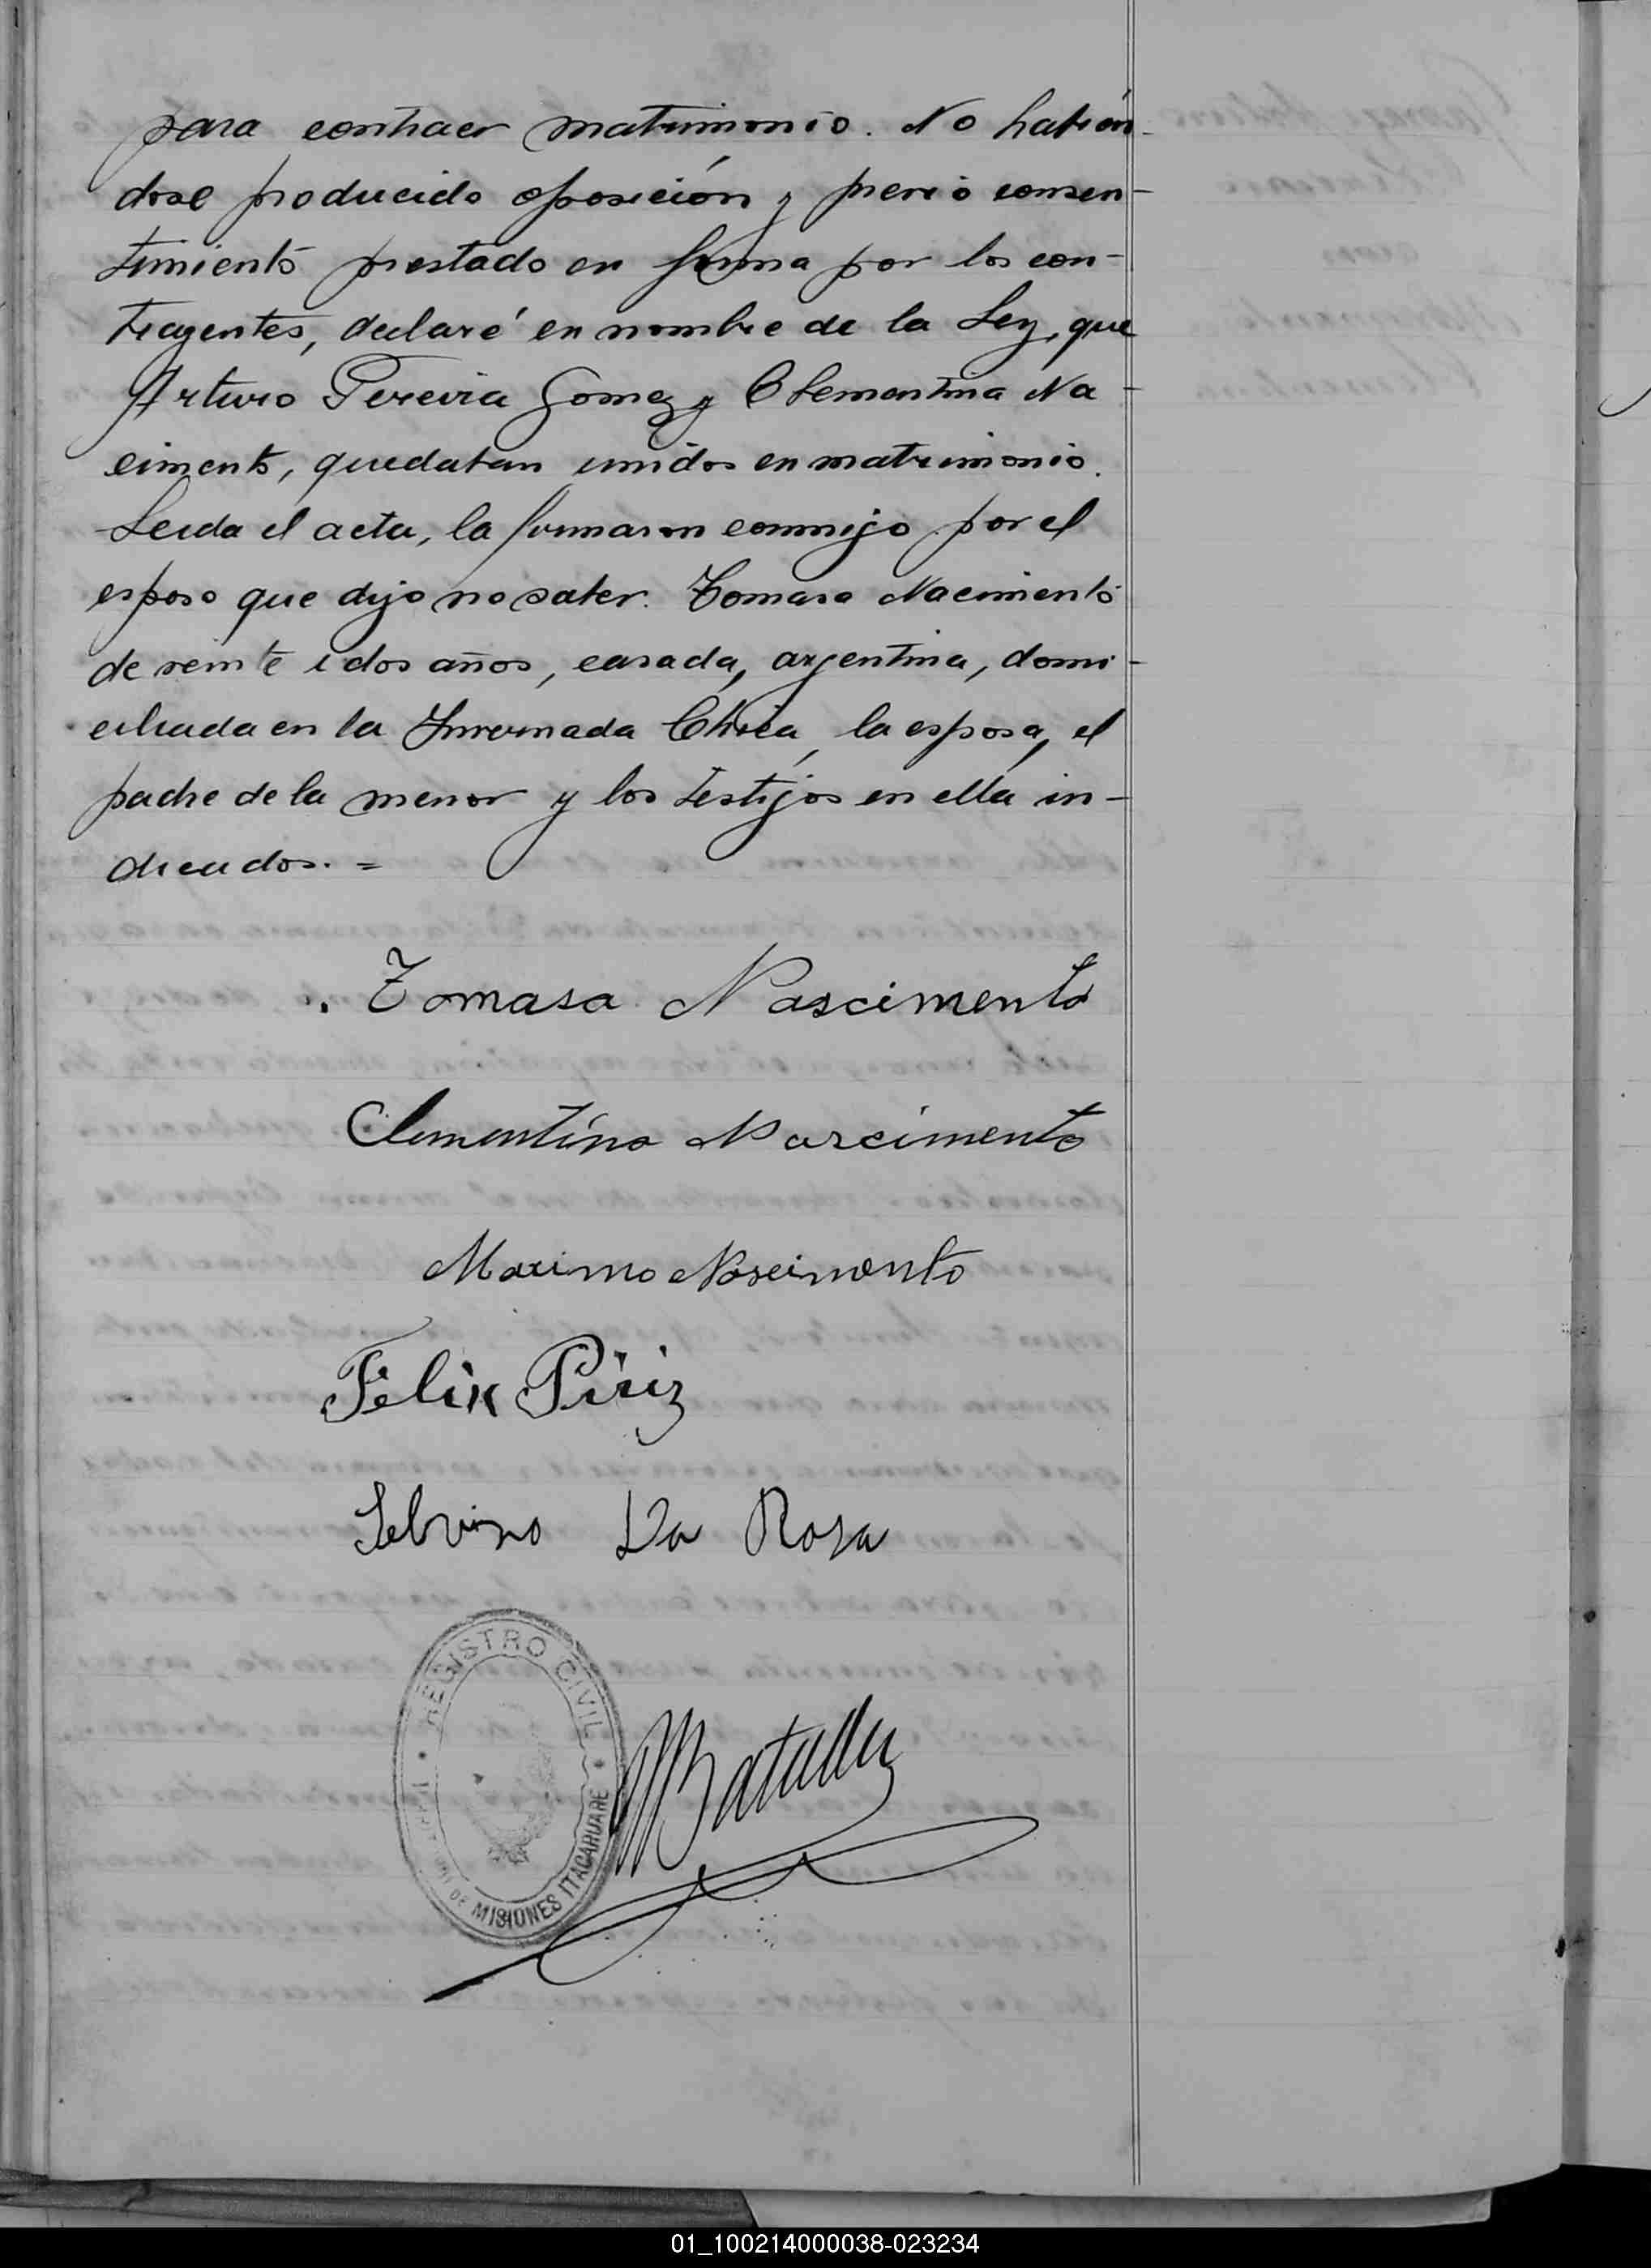 para contraer matrimonio. No habién-
dose producido oposición y previo consen-
timiento prestado en forma por los con-
trayentes, declaré en nombre de la Ley, que
Arturo Pereira Gomez y Clementina Na-
cimento, quedaban unidos en matrimonio.
Leida el acta, la firmaron conmigo por el
esposo que dijo no saber. Tomasa Nacimiento
de veinte i dos años, casada, argentina, domi-
ciliada en la Invernada Chica, la esposa, el
padre de la menor y los testigos en ella in-
dicados. =
Tomasa Nascimento
Clementina Nascimento
Maximo Nascimento
Felix Piriz
Selvino Da Rosa
REGISTRO CIVIL
DE MISIONES ITACARUARE
01_100214000038-023234